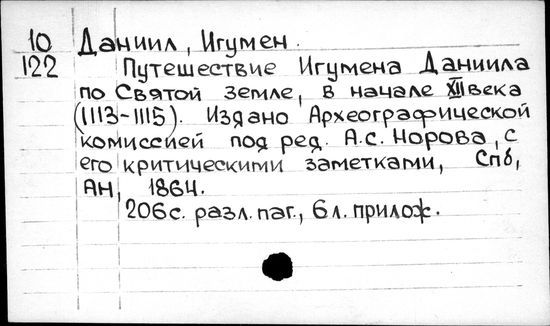 10 Даниил, Игумен.
122 Путешествие Игумена Даниила
по Святой Земле, в начале XII века
(1113-1115). Издано Археографической
комиссией под ред. А.С. Норова, с
его критическими заметками, Спб,
АН, 1864.
206с. разл. паг., 6л. прилож.